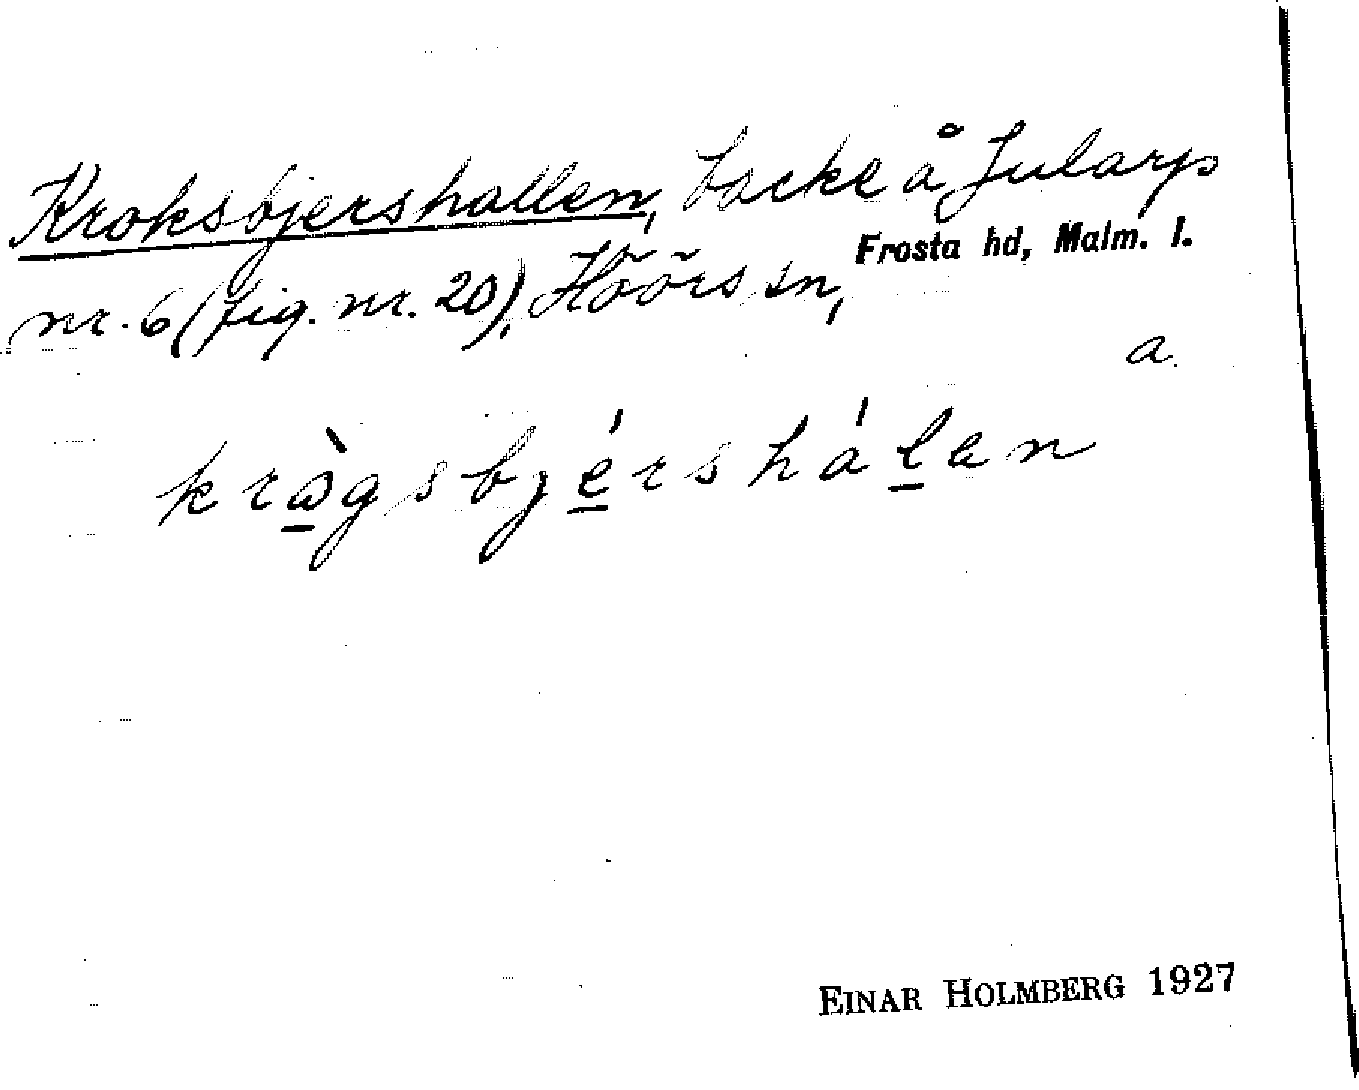 Kroksbjershallen, backe å Jularp
nr. 6 (fig. nr. 20), Höörs sn, Frosta hd, Malm. l.
a.
kràgsbjérshálen
EINAR HOLMBERG 1927